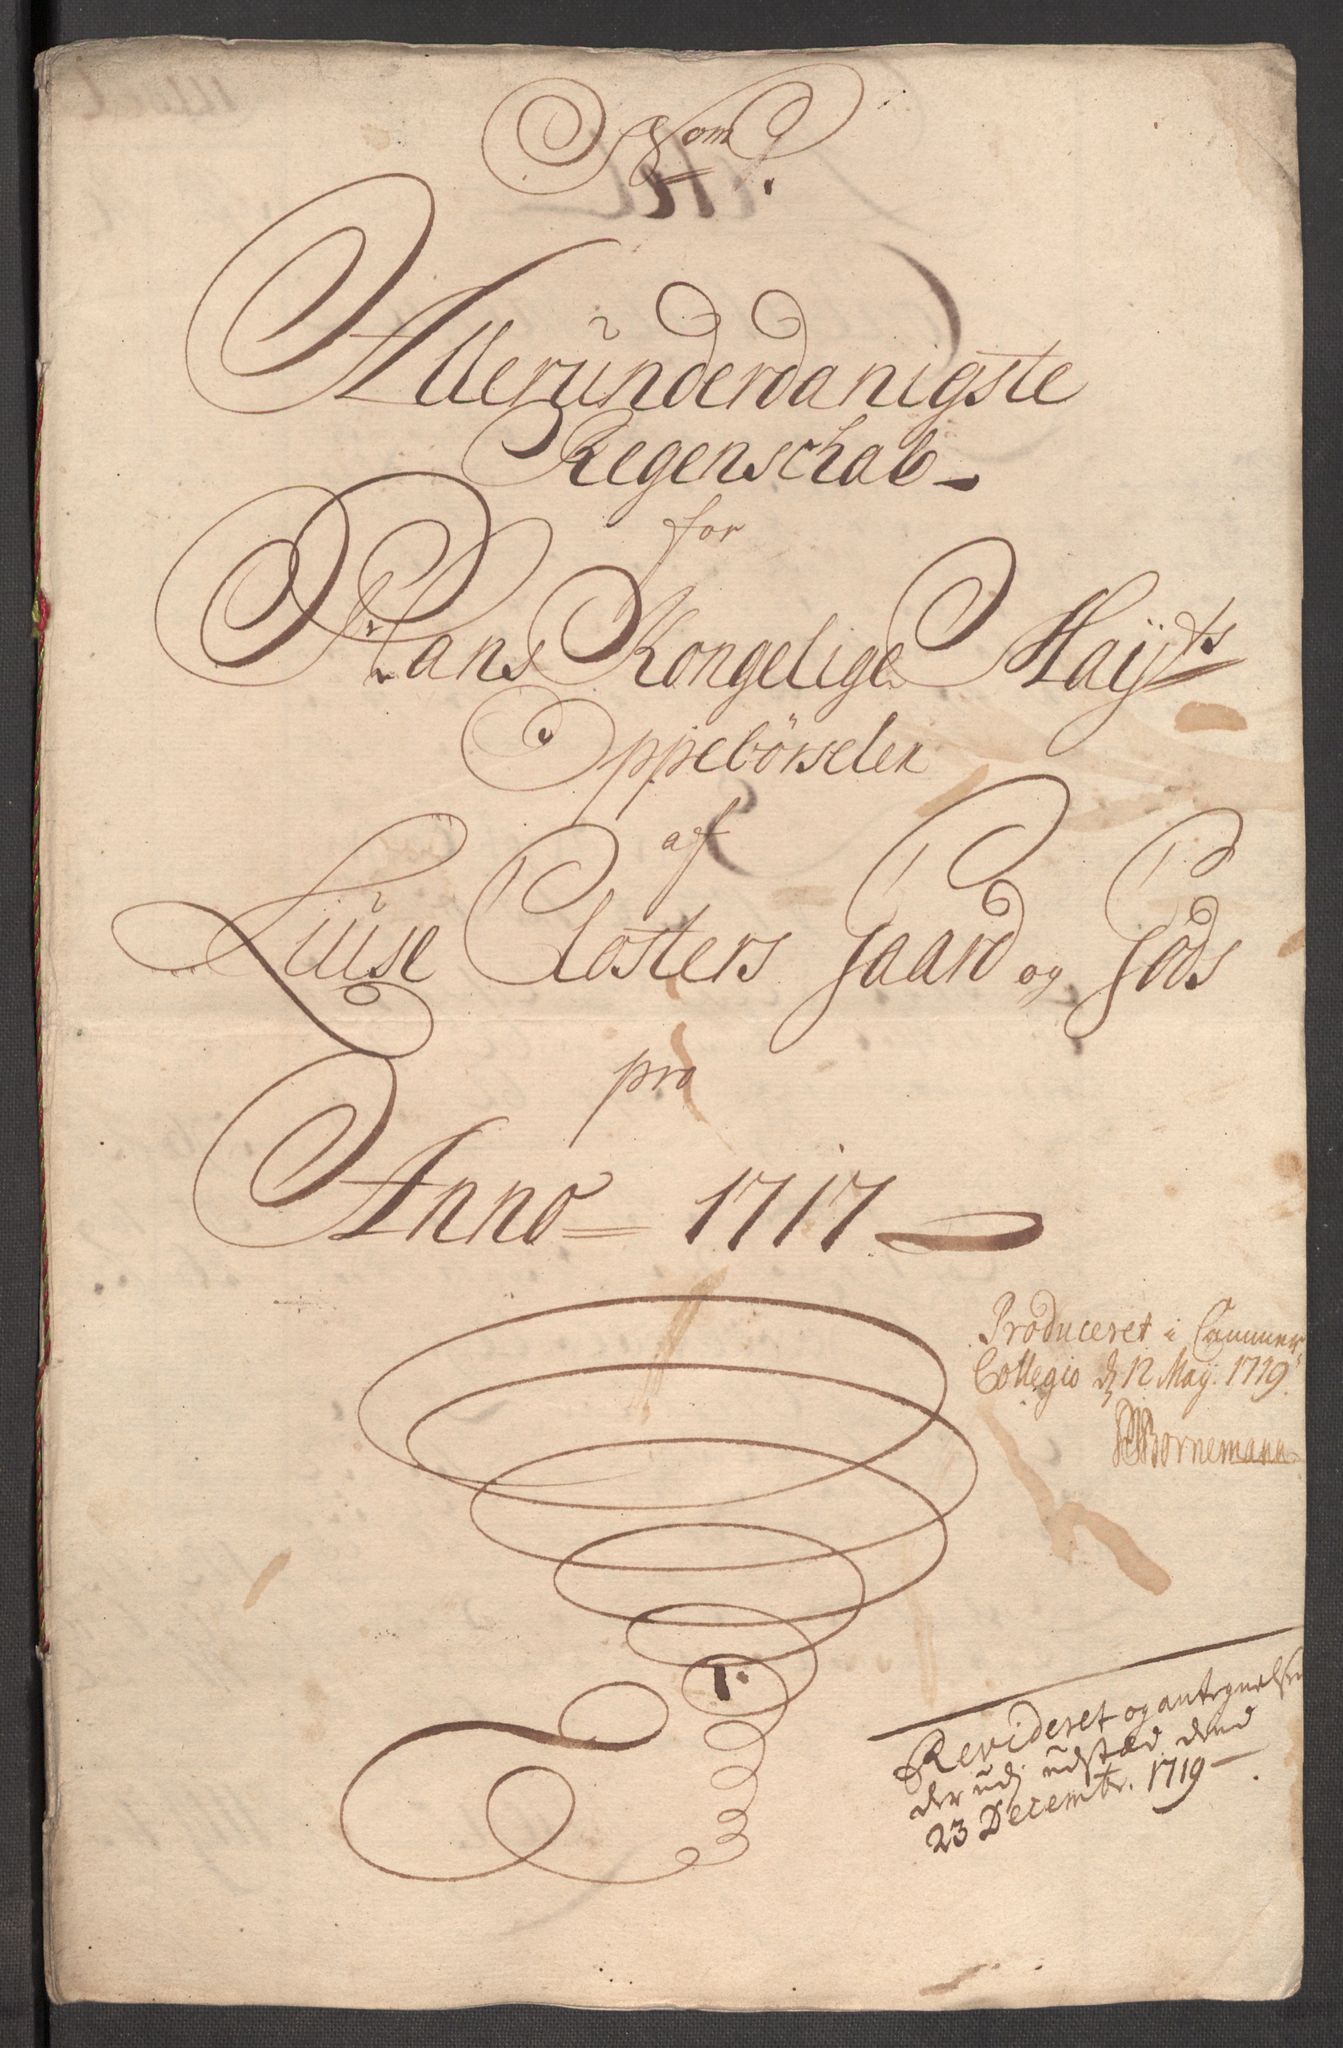 Alleründerdanigste
Regenschab
for
Hans Kongelige Maÿts
Oppebörselen
af
Lüüse Closters Gaard og Gods
pro
Anno = 1717
Produceret i Cammer
Collegio d 12 Maÿ 1719
Bornemann
Revideret og antegnelsen
der udj udstæd dend
23 Decembr. 1719
1.